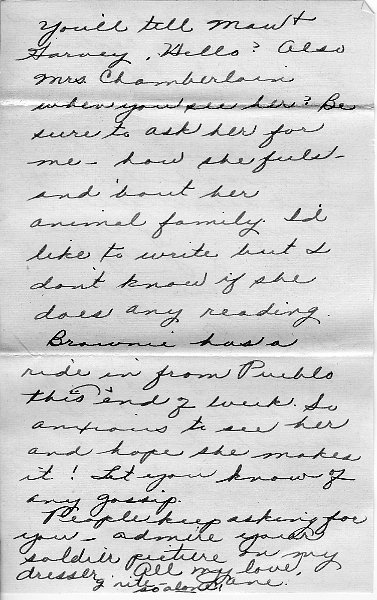 You'll tell Maw &
Harvey, Hello? Also
Mrs. Chamberlain
when you see her? Be
sure to ask her for
me - how she feels -
and 'bout her
animal family. I'd
like to write but I
don't know if she
does any reading.
Brownie has a
ride in from Pueblo
this end of week. So
anxious to see her
and hope she makes
it! Let you know of
any gossip.
People keep asking for
you - admire your
soldier picture on my
dresser. All my love,
so alone! Jane.